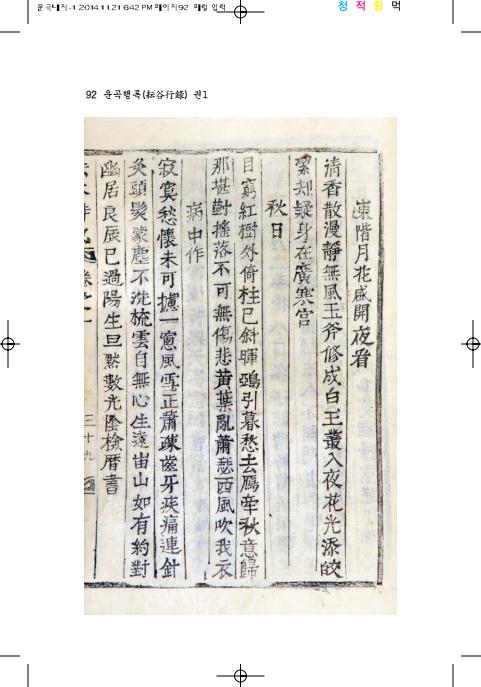 운곡대지-1 2014.11.21 6:42 PM 페이지92 매일 입력
청 적 황 먹
92 운곡행록(耘谷行錄) 권1
東階月花盛開夜看
淸香散漫靜無風玉斧修成白玉叢入夜花光添皎
絜却疑身在廣寒宮
秋日
目窮紅樹外倚柱已斜暉鵶引暮愁去鴈牽秋意歸
那堪對搖落不可無傷悲黃葉亂蕭瑟西風吹我衣
病中作
寂寞愁懷未可攄一窓風雪正蕭疎齒牙疾痛連針
灸頭髮蒙塵不洗梳雲自無心生遠岫山如有約對
幽居良辰已過陽生旦默數光陰檢曆書
卷之一
三十九